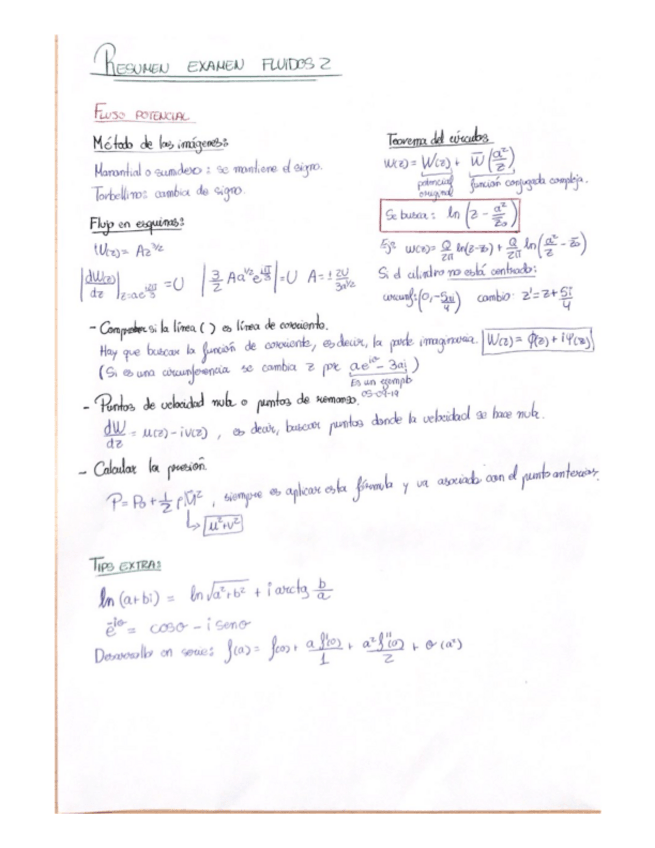 RESUMEN EXAMEN FLUIDOS 2
FLUJO POTENCIAL
Método de las imágenes:
Manantial o sumidero: se mantiene el signo.
Torbellino: cambia de signo.
Flujo en esquinas:
W(z) = Az^{3/2}
|dW(z)/dz|_{z=ae^{i2π/3}} = U |3/2 Aa^{1/2}e^{iπ/3}| = U A = ± 2U/3a^{1/2}
Teorema del círculo
W(z) = W(z) + W̄(a²/z)
potencial original función conjugada compleja.
Se busca: ln(z - a²/z̄₀)
Ej: W(z) = Q/2π ln(z-z₀) + Q/2π ln(a²/z - z̄₀)
Si el cilindro no está centrado:
circunf: (0, -5ai/4) cambio z' = z + 5i/4
- Comprobar si la línea ( ) es línea de corriente.
Hay que buscar la función de corriente, es decir, la parte imaginaria W(z) = ϕ(z) + iψ(z)
(Si es una circunferencia se cambia z por ae^{iθ} - 3ai)
Es un ejemplo
05-09-19
- Puntos de velocidad nula o puntos de remanso.
dW/dz = u(z) - iv(z), es decir, buscar puntos donde la velocidad se hace nula.
- Calcular la presión.
P = P₀ + 1/2 ρ|U|², siempre es aplicar esta fórmula y va asociado con el punto anterior.
↳ u² + v²
TIPS EXTRAS
ln(a+bi) = ln √a²+b² + i arctg b/a
e^{-iθ} = cosθ - i senθ
Desarrollo en serie: f(a) = f(0) + a f'(0)/1 + a² f''(0)/2 + σ(a²)